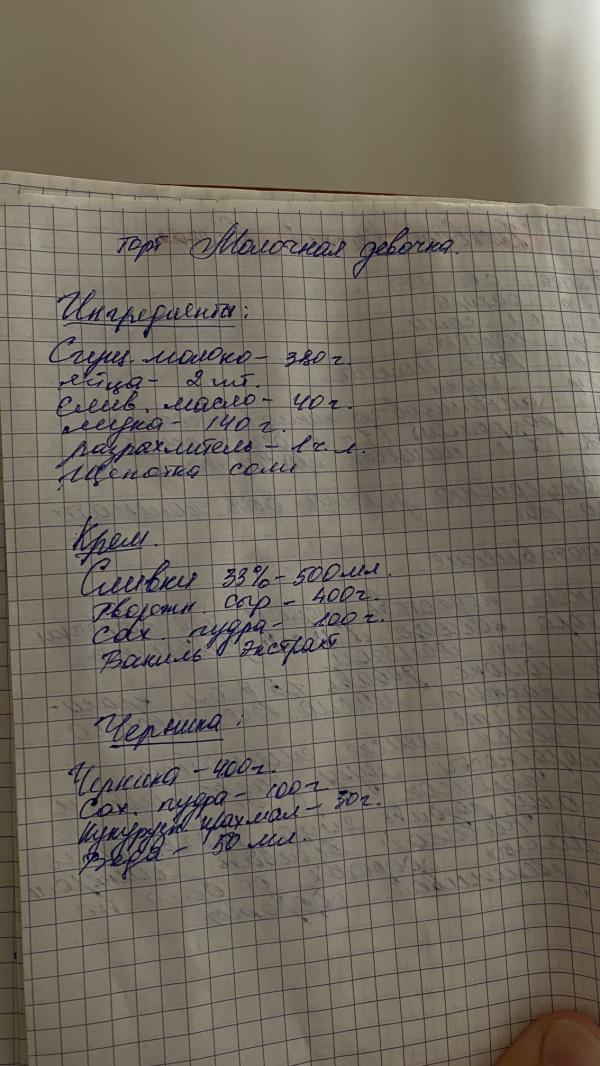 торт Молочная девочка.
Ингредиенты:
Сгущ. молоко - 380 г.
яйца - 2 шт.
Слив. масло - 40 г.
мука - 140 г.
разрахлитель - 1 ч.л.
Щепотка соли
Крем.
Сливки 33% - 500 мл.
творожн. сыр - 400 г.
Сах. пудра - 100 г.
Ваниль экстракт
Черника:
Черника - 400 г.
Сах. пудра - 100 г
Кукурузн. крахмал - 30 г.
Вода - 50 мл.